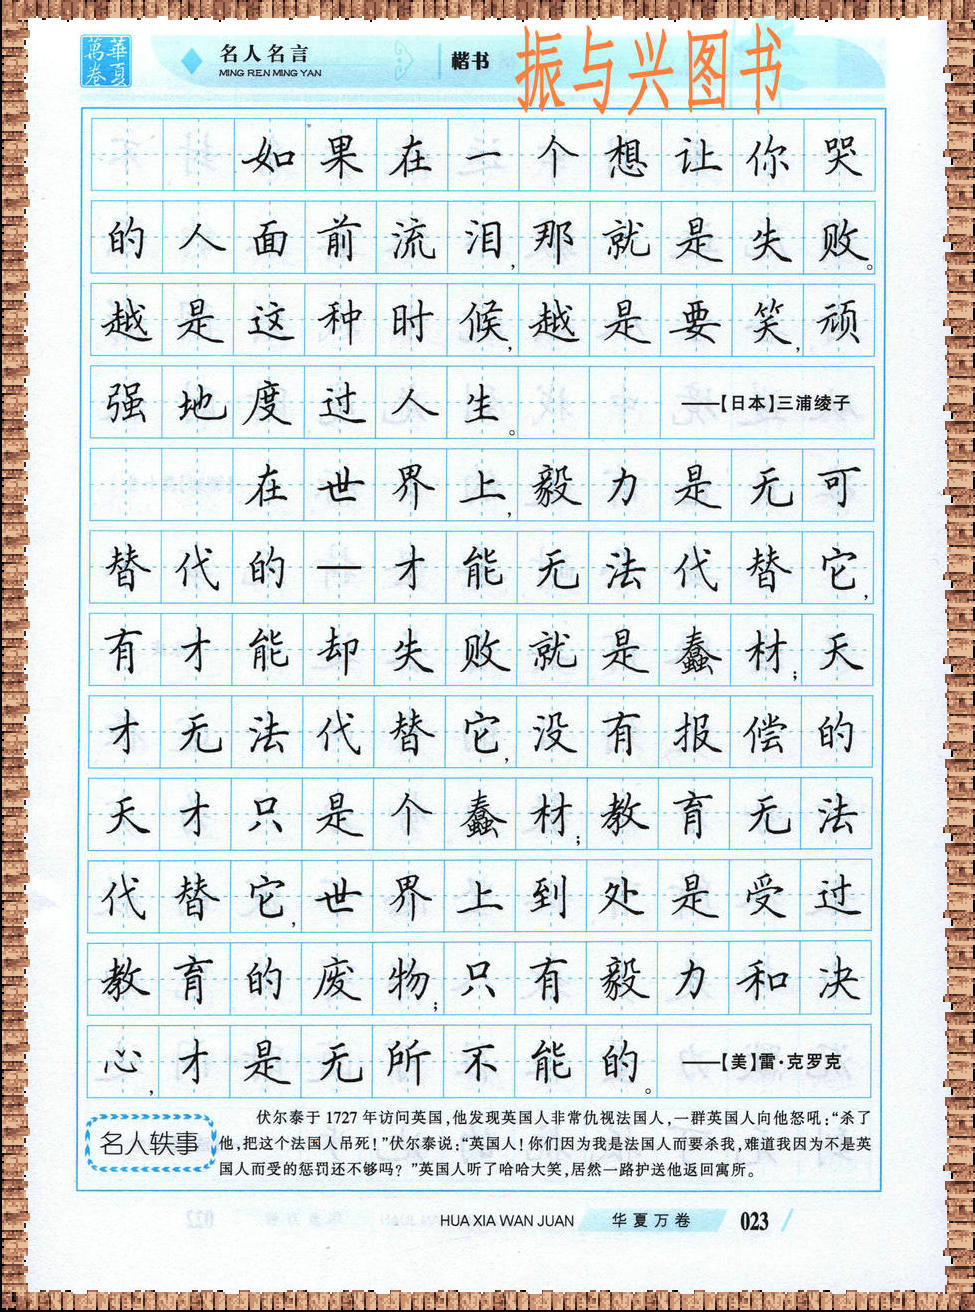 華夏萬卷
名人名言
MING REN MING YAN
楷书
振与兴图书
如果在一个想让你哭
的人面前流泪,那就是失败。
越是这种时候,越是要笑,顽
强地度过人生。 ——【日本】三浦绫子
在世界上,毅力是无可
替代的—才能无法代替它,
有才能却失败就是蠢材;天
才无法代替它,没有报偿的
天才只是个蠢材;教育无法
代替它,世界上到处是受过
教育的废物;只有毅力和决
心,才是无所不能的。 ——【美】雷·克罗克
名人轶事
伏尔泰于 1727 年访问英国,他发现英国人非常仇视法国人,一群英国人向他怒吼:“杀了
他,把这个法国人吊死!”伏尔泰说:“英国人!你们因为我是法国人而要杀我,难道我因为不是英
国人而受的惩罚还不够吗?”英国人听了哈哈大笑,居然一路护送他返回寓所。
HUA XIA WAN JUAN 华夏万卷 023